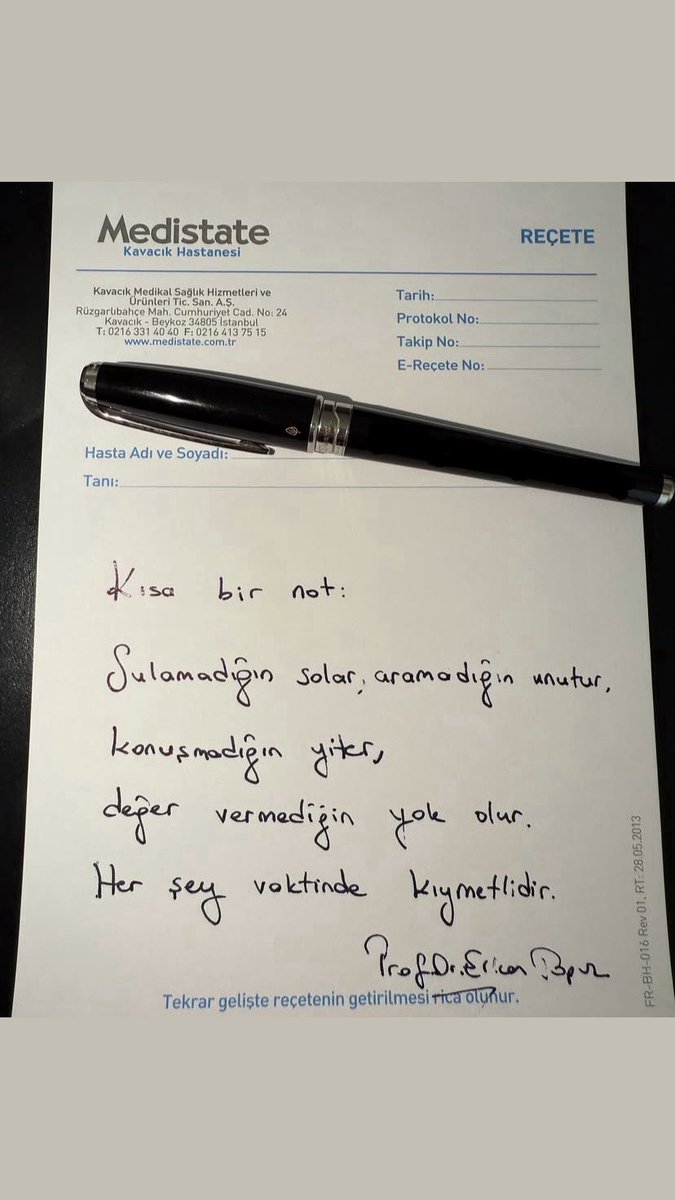 Medistate
Kavacık Hastanesi
REÇETE
Kavacık Medikal Sağlık Hizmetleri ve
Ürünleri Tic. San. A.Ş.
Rüzgarlıbahçe Mah. Cumhuriyet Cad. No: 24
Kavacık - Beykoz 34805 İstanbul
T: 0216 331 40 40 F: 0216 413 75 15
www.medistate.com.tr
Tarih:
Protokol No:
Takip No:
E-Reçete No:
Hasta Adı ve Soyadı:
Tanı:
Kısa bir not:
Sulamadığın solar, aramadığın unutur,
konuşmadığın yiter,
değer vermediğin yok olur.
Her şey vaktinde kıymetlidir.
Prof.Dr.
Tekrar gelişte reçetenin getirilmesi rica olunur.
FR-BH-016 Rev 01, RT: 28.05.2013